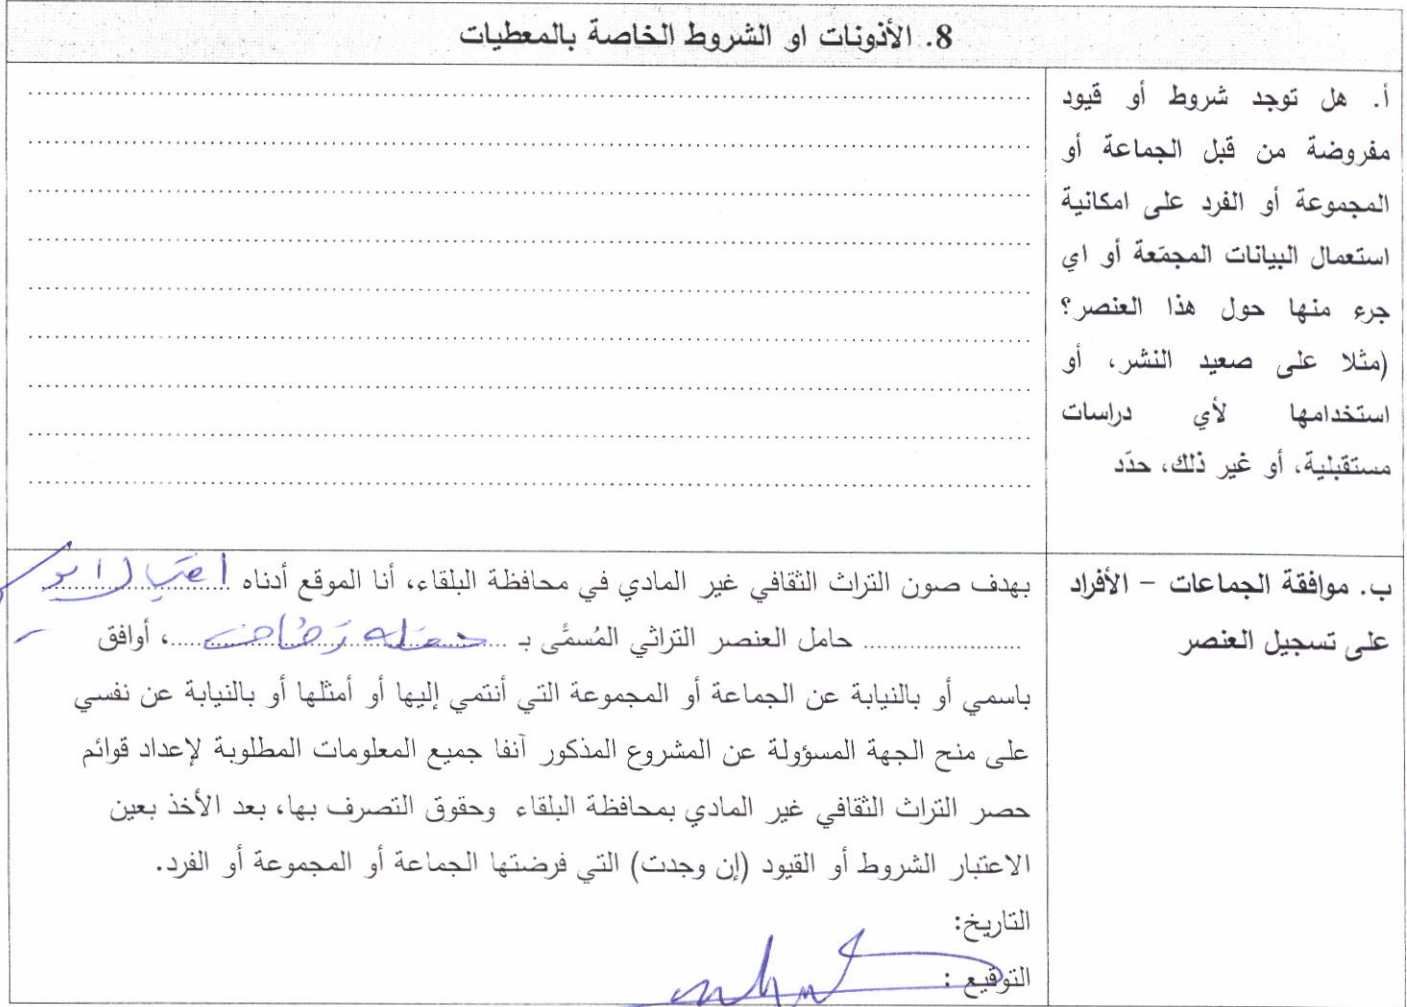 8. الأذونات او الشروط الخاصة بالمعطيات
أ. هل توجد شروط أو قيود
مفروضة من قبل الجماعة أو
المجموعة أو الفرد على امكانية
استعمال البيانات المجمّعة أو اي
جرء منها حول هذا العنصر؟
(مثلا على صعيد النشر، أو
استخدامها لأي دراسات
مستقبلية، أو غير ذلك، حدّد
ب. موافقة الجماعات – الأفراد
على تسجيل العنصر
بهدف صون التراث الثقافي غير المادي في محافظة البلقاء، أنا الموقع أدناه
حامل العنصر التراثي المُسمَّى بـ ، أوافق
باسمي أو بالنيابة عن الجماعة أو المجموعة التي أنتمي إليها أو أمثلها أو بالنيابة عن نفسي
على منح الجهة المسؤولة عن المشروع المذكور آنفا جميع المعلومات المطلوبة لإعداد قوائم
حصر التراث الثقافي غير المادي بمحافظة البلقاء وحقوق التصرف بها، بعد الأخذ بعين
الاعتبار الشروط أو القيود (إن وجدت) التي فرضتها الجماعة أو المجموعة أو الفرد.
التاريخ:
التوقيع :